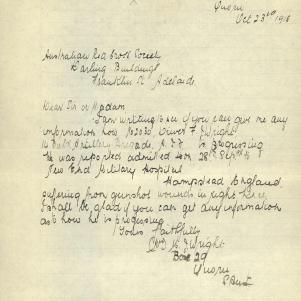 Quorn
Oct 23rd 1916
Australian Red Cross Society
Darling Building
Franklin St Adelaide
Dear Sir or Madam
I am writing to see if you can give me any
information how Driver F J Wright
Field Artillery Brigade, A.I.F. is progressing
He was reported admitted on 28th Sept to
New End Military Hospital
Hampstead England
suffering from gunshot wounds in right knee
I shall be glad if you can get any information
as to how he is progressing
Yours Faithfully
J Wright
Box 29
Quorn
S. Aust